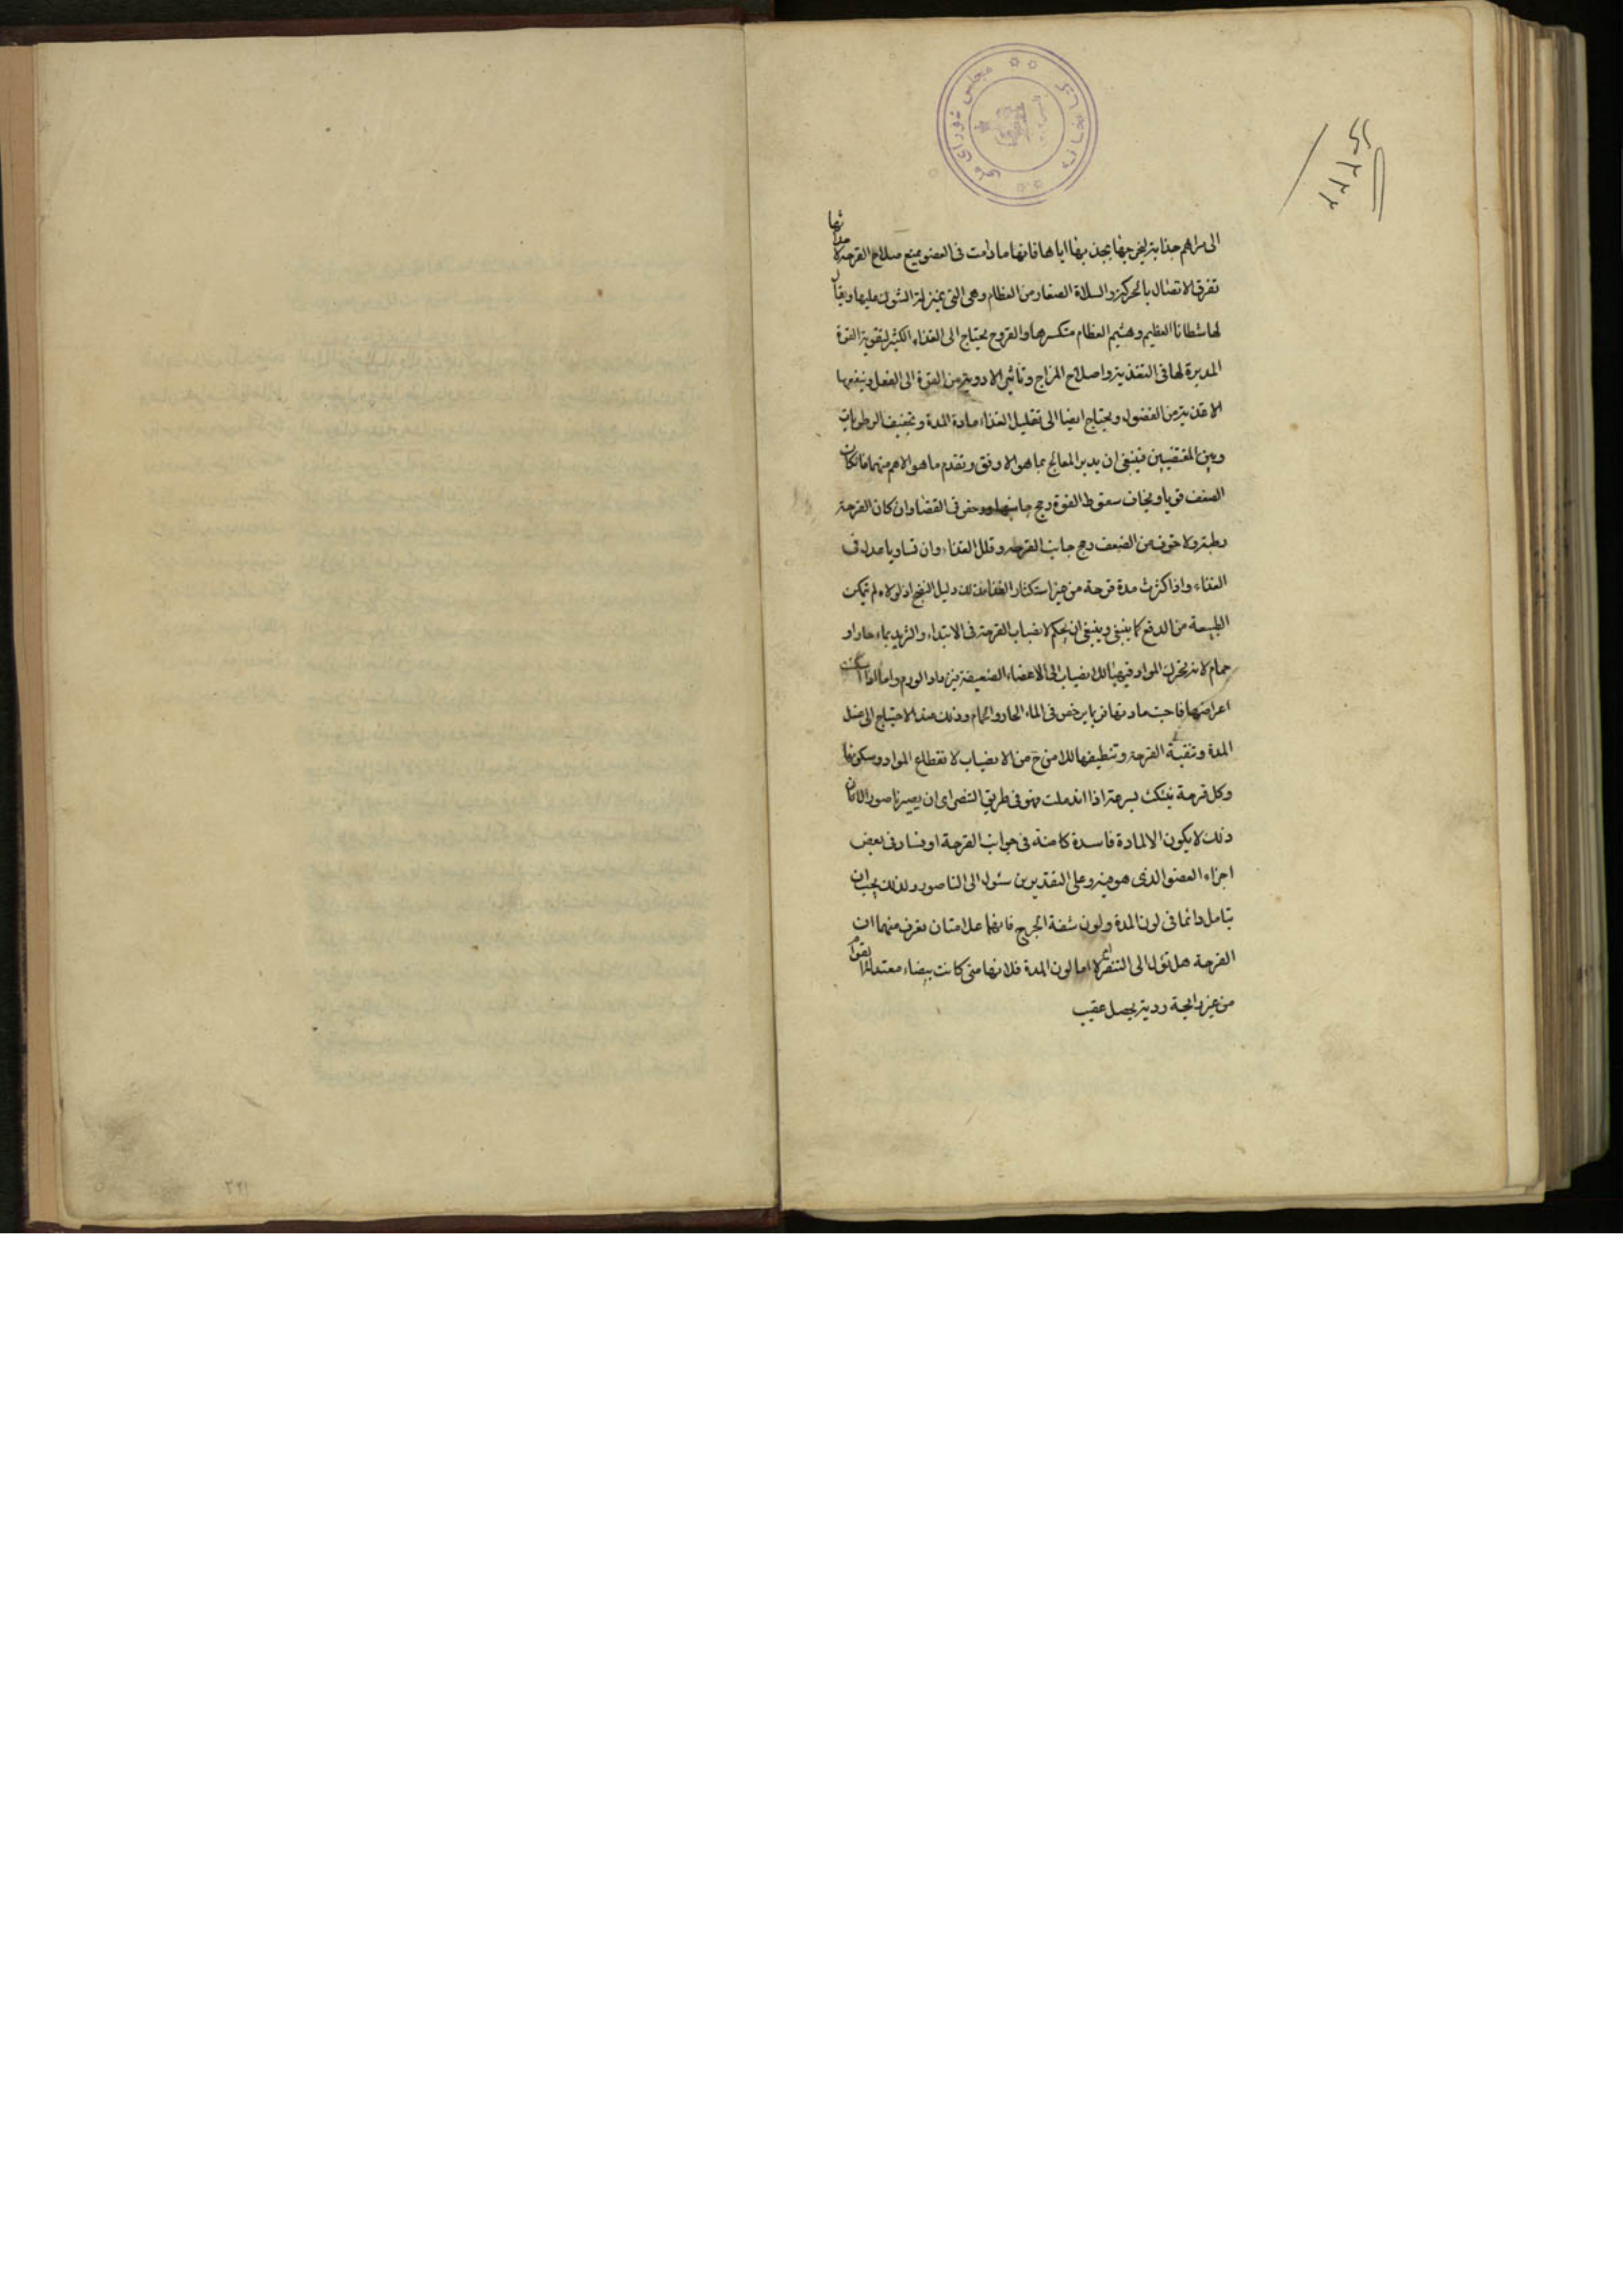 الى مراهم جذابة يخرجها بجذبها اياها فانها ما دامت فى العضو يمنع صلاح القرحة لاحداثها
تفرق الاتصال بالحركة والسلاة الصغار من العظام وهى التى بمنزلة الشوك عليها ويقال
لها شظايا العظم وهشيم العظام متكسرها والقروح يحتاج الى الغذاء الكثير لتقوية القوة
المدبرة لها فى التغذية واصلاح المزاج وتاثير الادوية من القوة الى الفعل
الاغذية من الفضول ويحتاج ايضا الى تقليل الغذاء مادة المدة وتجفيف الرطوبات
وبين المقتضيين فينبغى ان يدبر المعالج بما هو الاوفق ويقدم ما هو الاهم منهما فان كان
الضعف قويا ويخاف سقوط القوة رجح جانبها وان كان القرحة
رطبة ولا خوف من الضعف رجح جانب القرحة وقلل الغذاء وان تساويا عدل فى
الغذاء واذا كثرت مدة قرحة من غير استكثار الغذاء فذلك دليل النضج اذ لولاه لم تمكن
الطبيعة من الدفع كما ينبغى وينبغى ان يحكم لانصباب القرحة فى الابتداء والتزيد بماء حار او
حمام لانه يحرك المواد فيهيا للانصباب الى الاعضاء الضعيفة فيزداد الورم واما اذا سكنت
اعراضها مادتها فربما يرخص فى الماء الحار والحمام وذلك عند الاحتياج الى غسل
المدة وتنقية القرحة وتنظيفها للامن ح من الانصباب لانقطاع المواد وسكونها
وكل قرحة ينتكث بسرعة اذا اندملت فهو فى طريق التنصر اى ان يصير ناصورا لان
ذلك لا يكون الا لمادة فاسدة كامنة فى جوانب القرحة او فساد فى بعض
اجزاء العضو الذى هو فيه وعلى التقديرين يئول الى الناصور ولذلك يجب ان
يتامل دائما فى لون المدة ولون شفة الجرح فانهما علامتان تعرف منهما ان
القرحة هل تؤل الى التنصر ام لا اما لون المدة فلانها متى كانت بيضاء معتدلة القوام
من غير رايحة ردية يحصل عقيب
مجلس شورای ملی
کتابخانه
۲۲۱